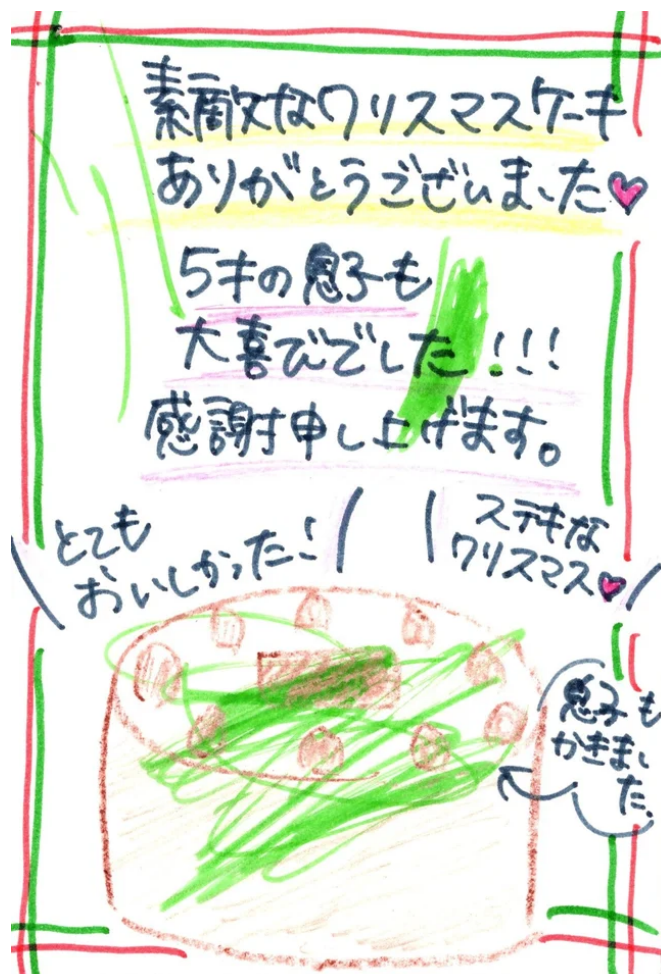 素敵なクリスマスケーキ
ありがとうございました
5才の息子も
大喜びでした!!!
感謝申し上げます。
とても
おいしかった!
ステキな
クリスマス
息子も
かきまし
た。